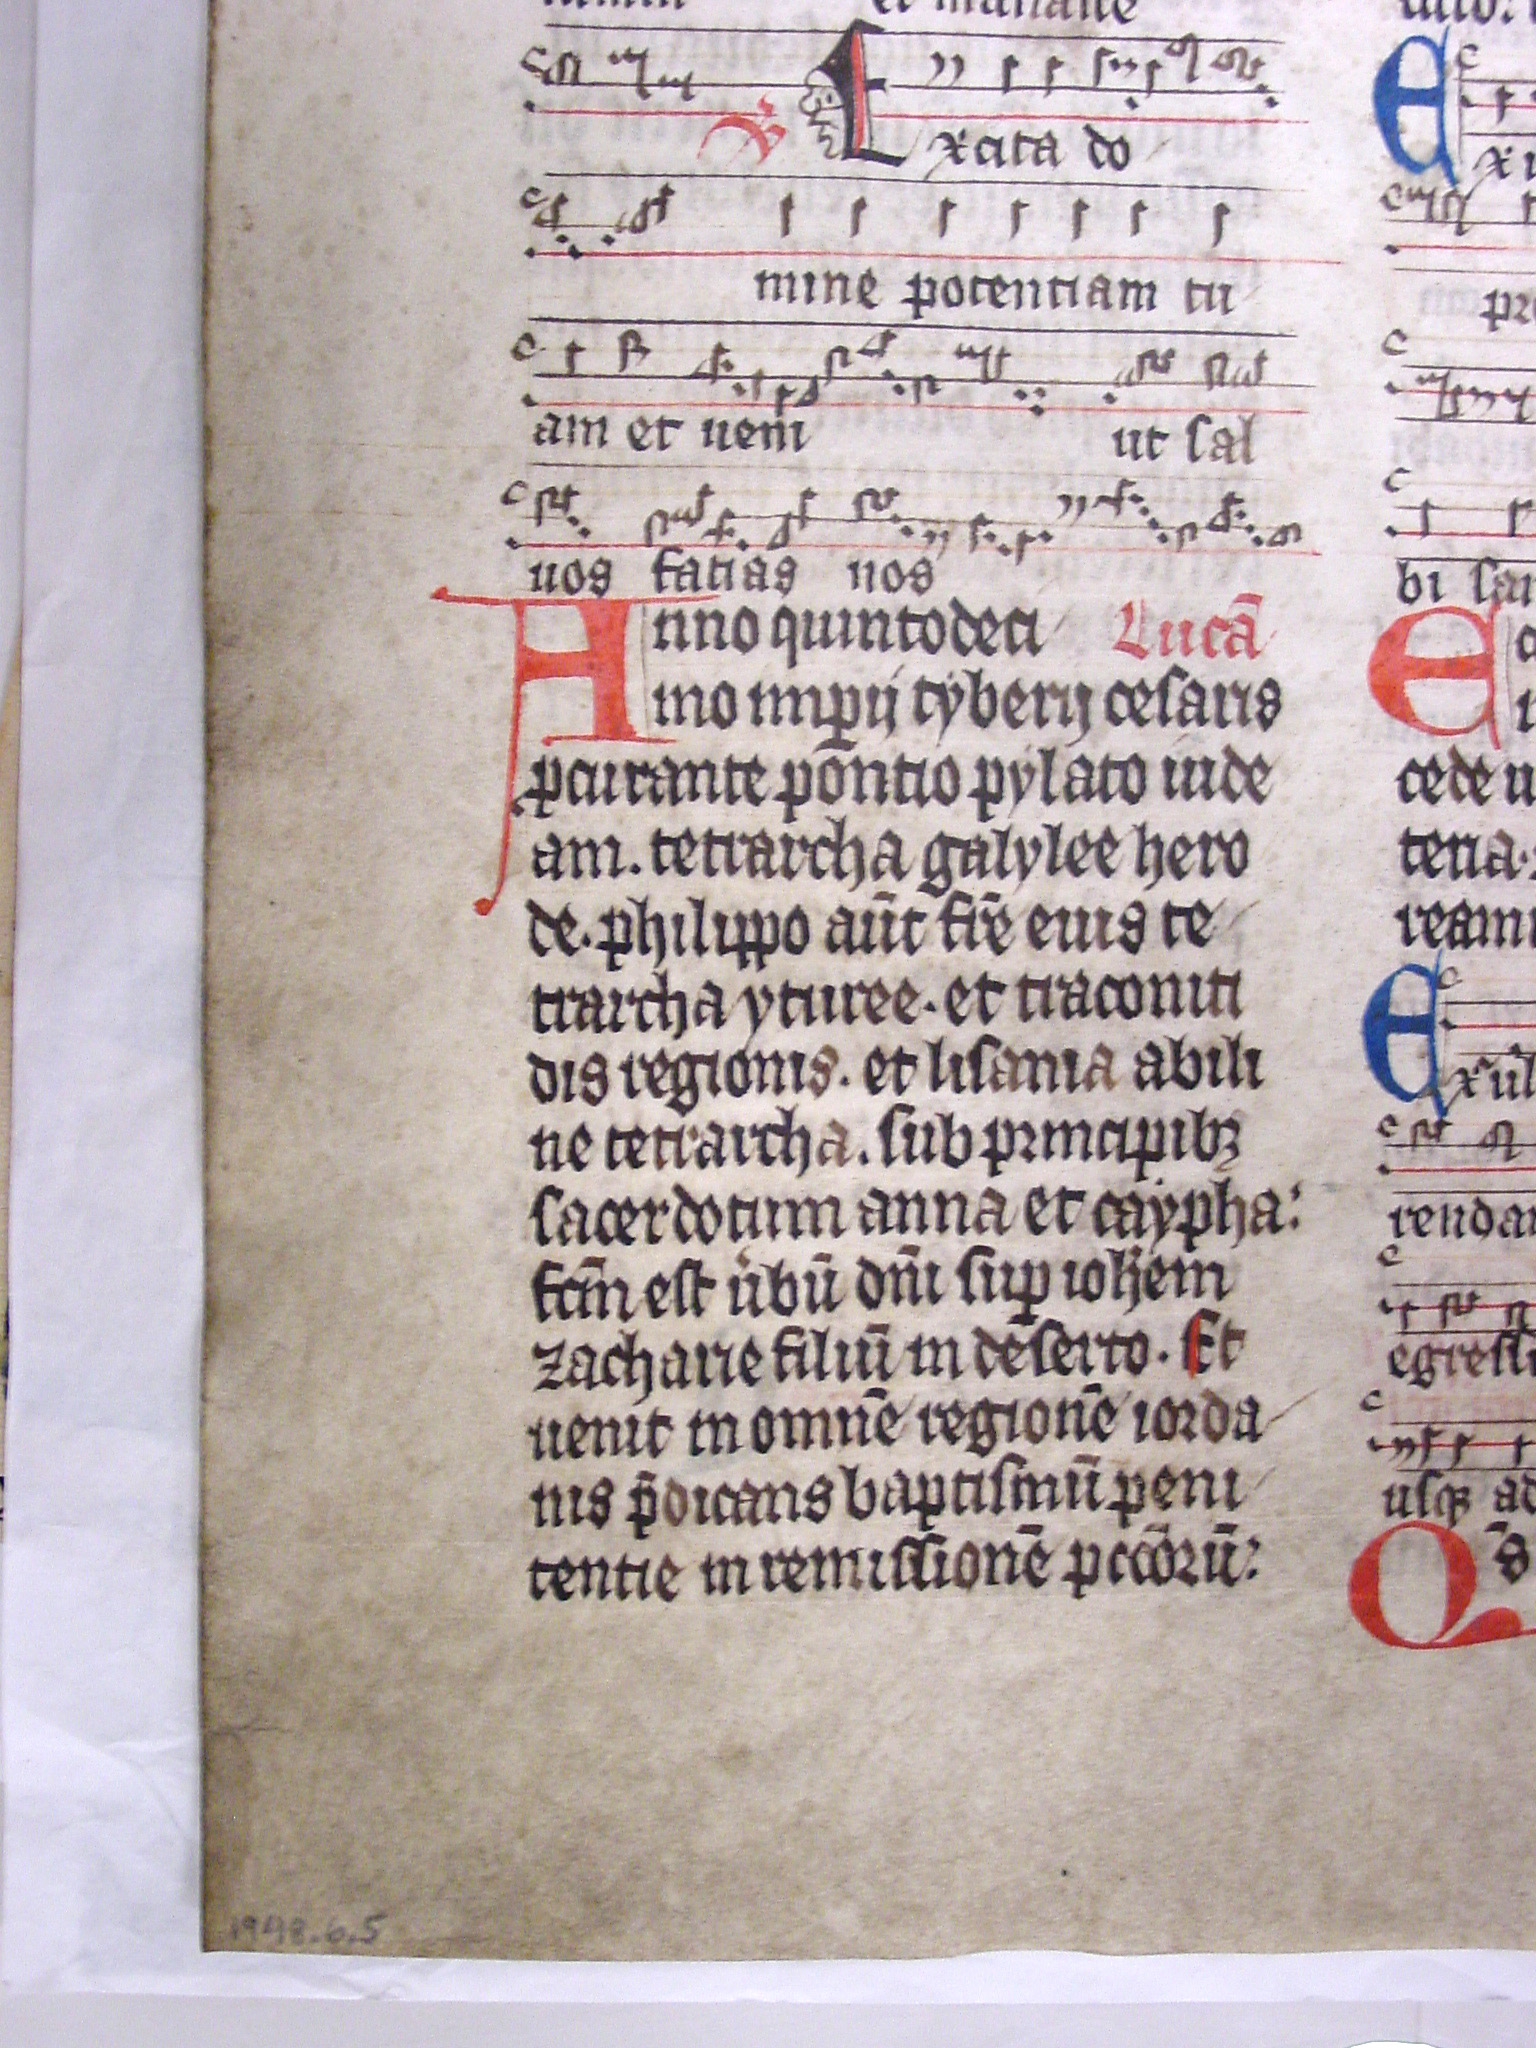 et manasse
℣ Excita do
mine potentiam tu
am et veni ut sal
uos facias nos
Anno quintodeci Lucā
mo impij tyberij cesaris
pcurante pōntio pylato iude
am. tetrarcha galylee hero
de. philippo aūt frē eius te
trarcha yturee. et traconiti
dis regionis. et lisania abili
ne tetrarcha. sub principibꝫ
sacerdotum anna et caypha:
fcm̄ est ūbū dn̄i sup ioh̄em
zacharie filiū in deserto. Et
uenit in omnē regionē iorda
nis p̄dicans baptismū peni
tentie in remissionē pccōrū:
E
xi
pr
bi san
E
cede u
tena.
reami
Exul
rendar
egressi
usqꝫ ad
Q
1948.6.5